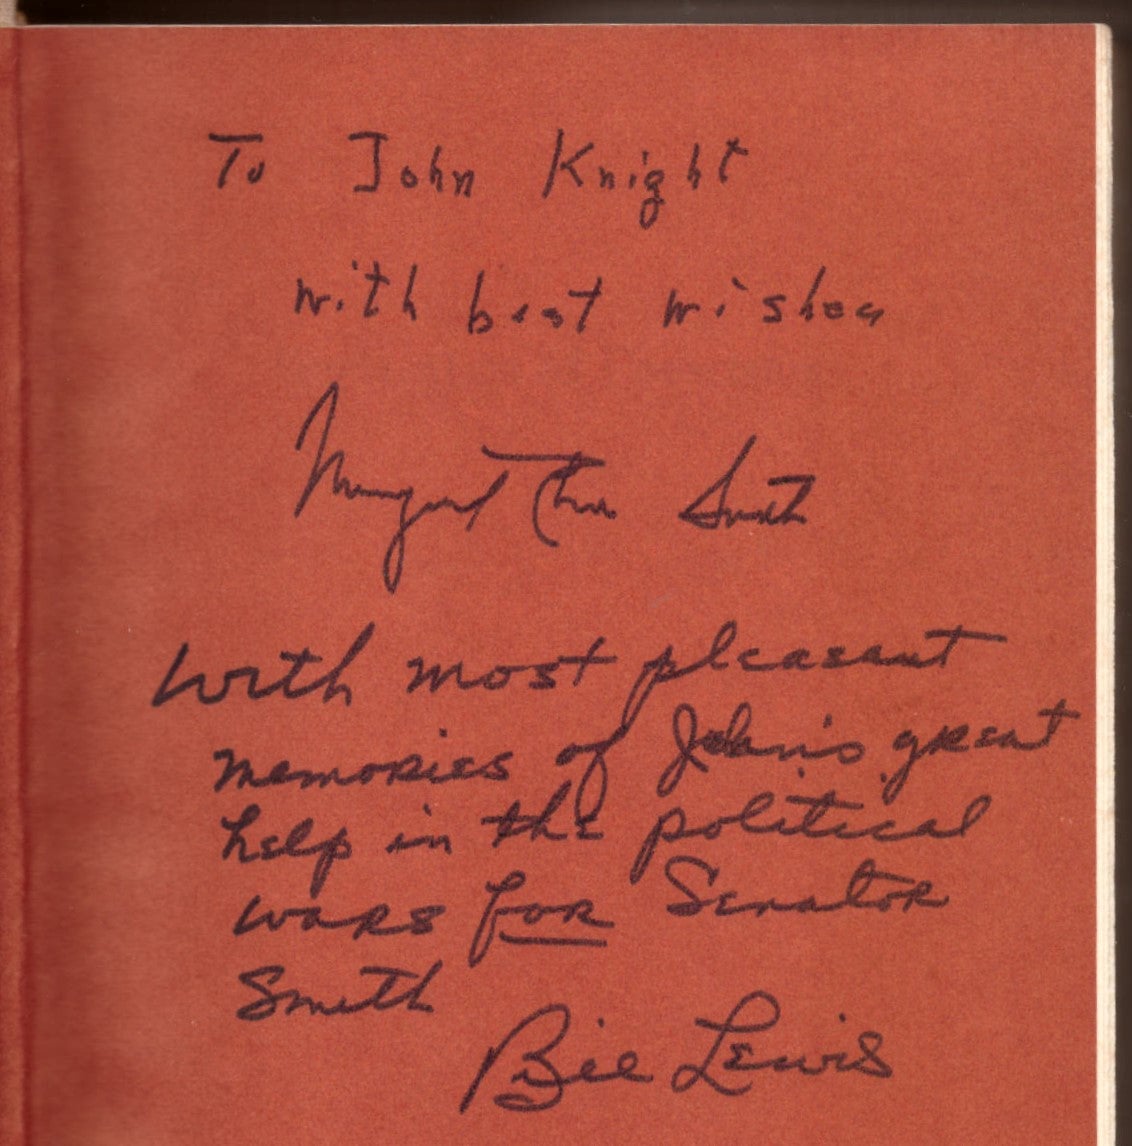 To John Knight
with best wishes
Margaret Chase Smith
With most pleasant
memories of John's great
help in the political
wars for Senator
Smith
Bill Lewis